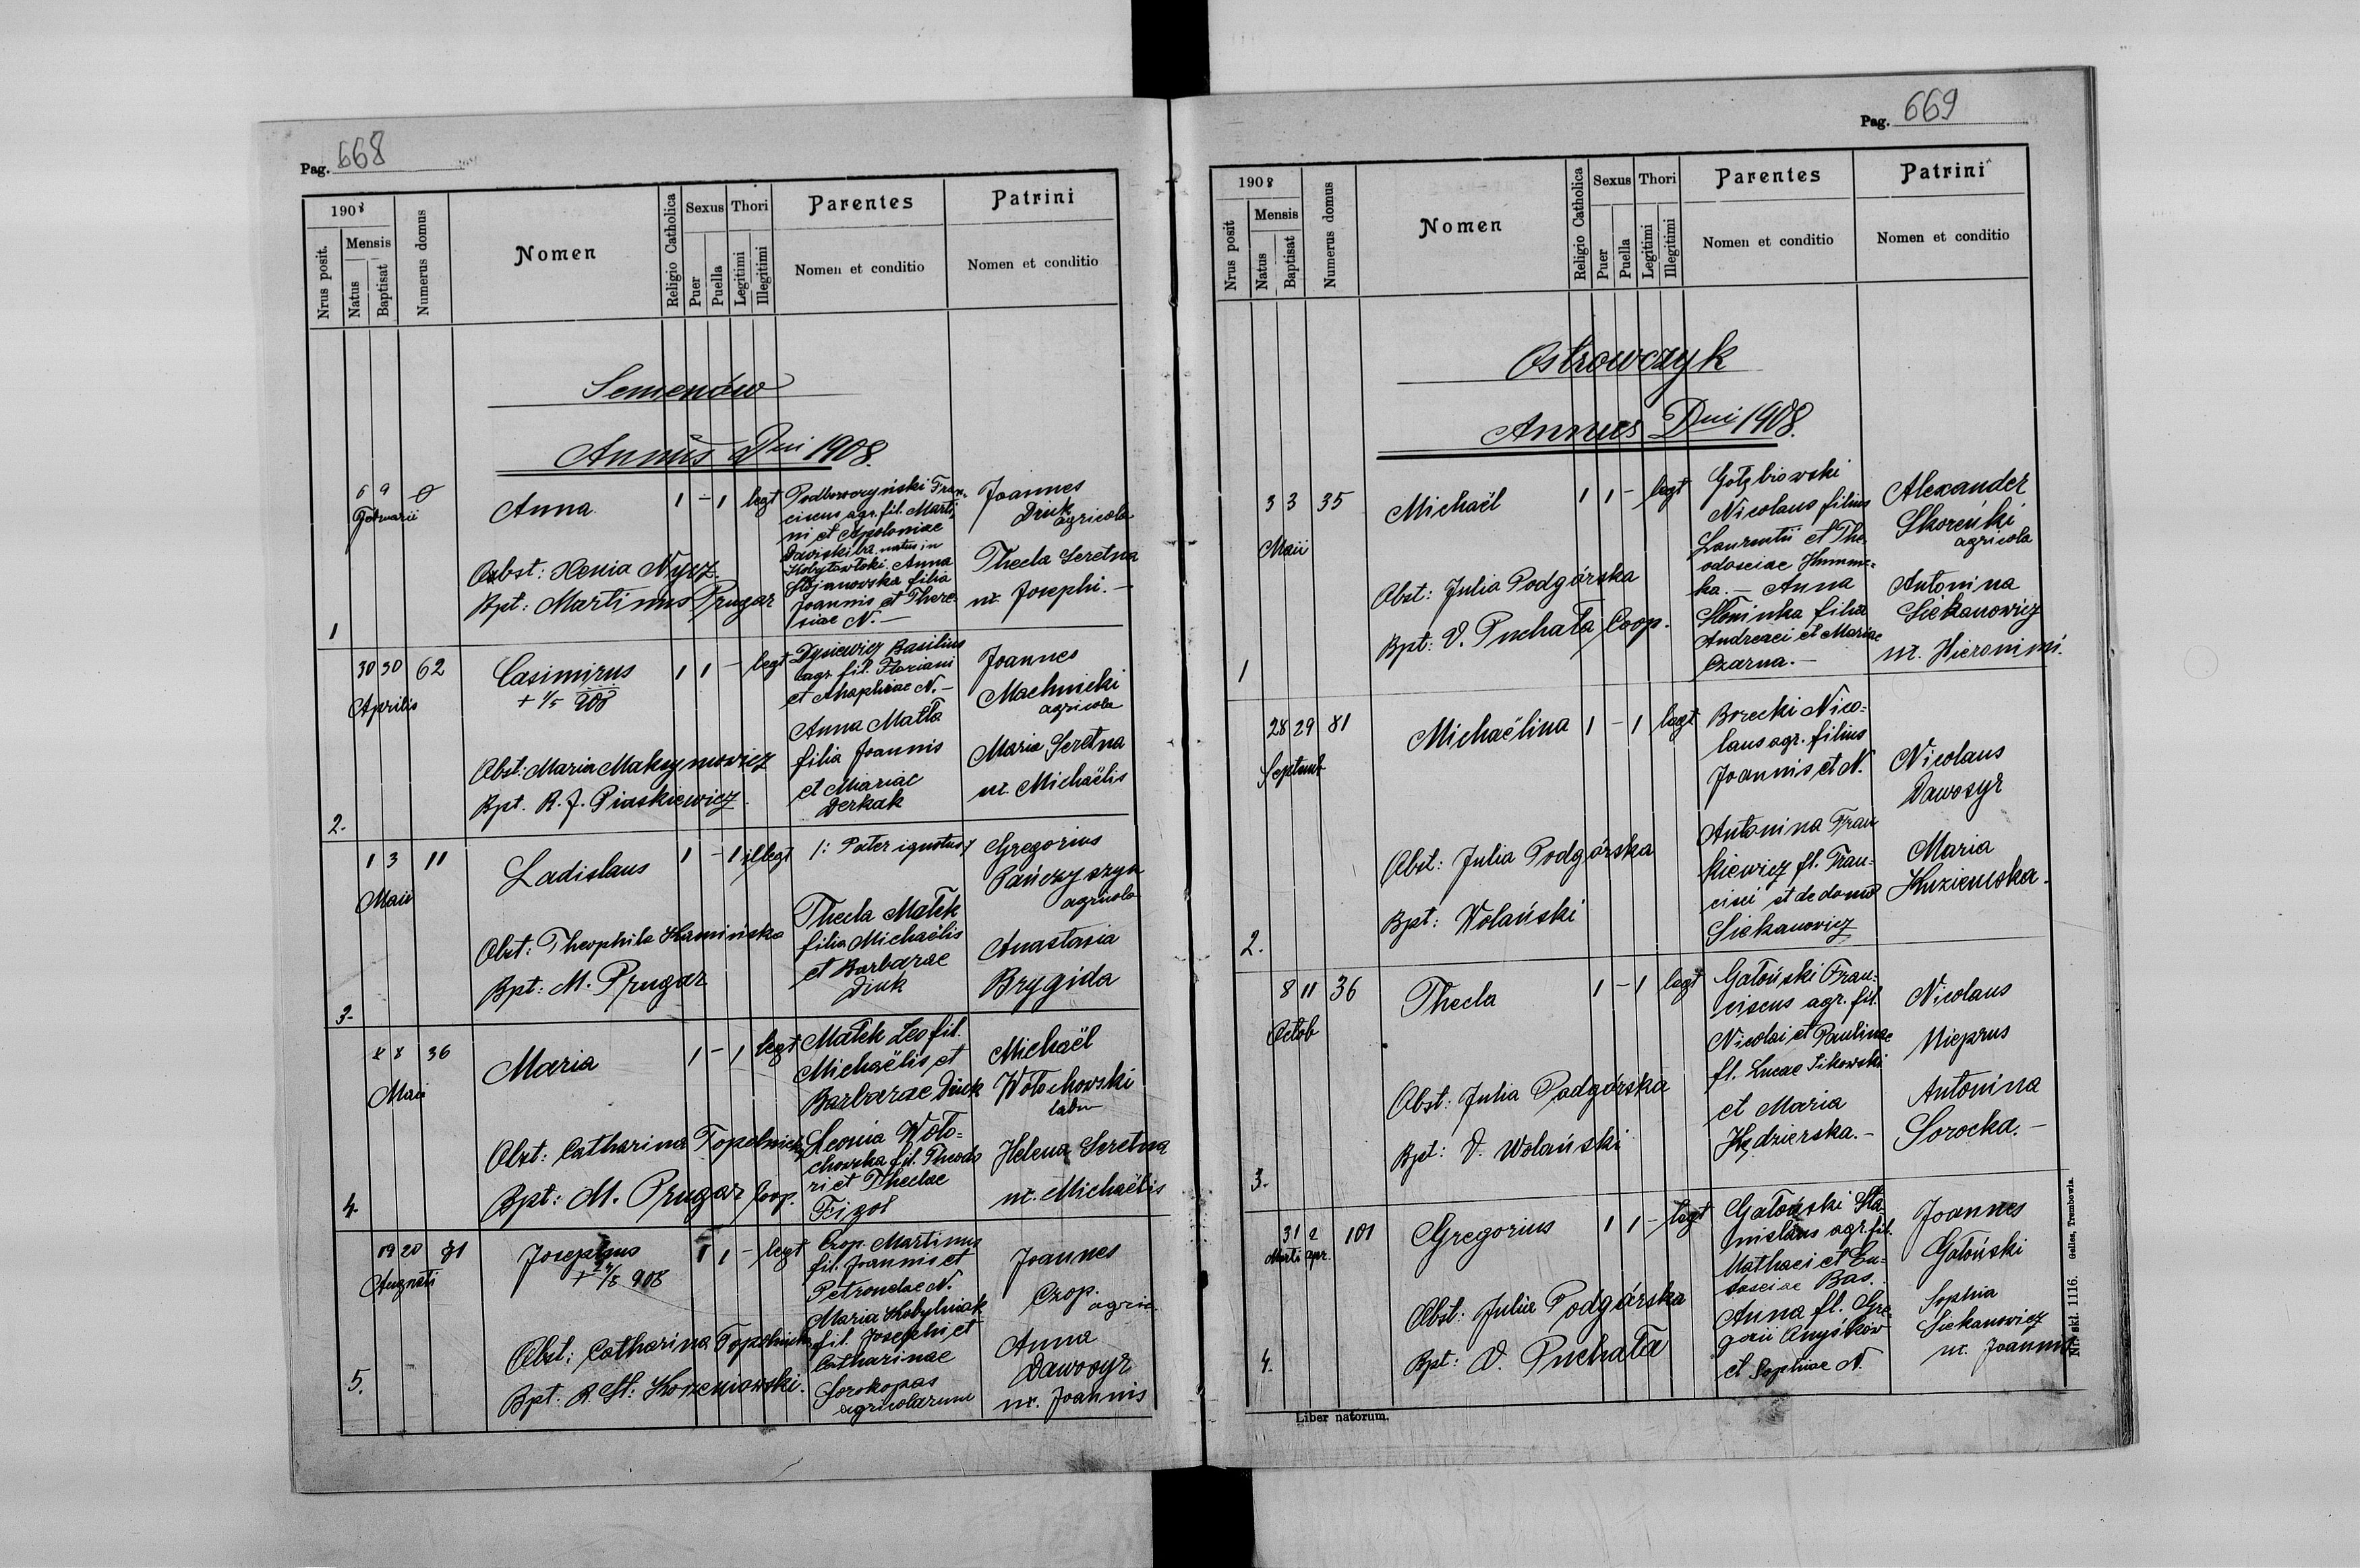 Pag. 668
1908
Nrus posit.
Mensis
Natus
Baptisat
Numerus domus
Nomen
Religio Catholica
Sexus
Puer
Puella
Thori
Legitimi
Illegitimi
Parentes
Nomen et conditio
Patrini
Nomen et conditio
Semenów
Annus Dni 1908.
1
6 9
Februarii
Anna
1 - 1 legt
Obst: Xenia Nycz
Bpt: Martinus Prugar
Podhorszyński Fran-
ciscus agr. fil. Marti
ni et Apoloniae
natus in
Anna
Stojanowska filia
Joannis et There-
siae N. -
Joannes
Diuk
agricola
Thecla Seretna
ux. Josephi. -
2.
30 30 62
Aprilis
Casimirus
+ 1/5 908
1 1 - legt
Obst: Maria Maksymowicz
Bpt. R. J. Piaskiewicz.
Dysiewicz Basilius
agr. fil. Floriani
et Ahaphiae N. -
Anna Małta
filia Joannis
et Mariae
Derkak
Joannes
Machnicki
agricola
Maria Seretna
ux. Michaëlis
3.
1 3 11
Maii
Ladislaus
1 - 1 illegt
Obst: Theophila Kamińska
Bpt: M. Prugar
/: Pater ignotus /
Thecla Małek
filia Michaëlis
et Barbarae
Diuk
Gregorius
Pańczyszyn
agricola
Anastasia
Brygida
4.
8 8 36
Maii
Maria
1 - 1 legt
Obst: Catharina Topolnicka
Bpt: M. Prugar Coop.
Małek Leo fil.
Michaëlis et
Barbarae Diuk
Xenia Woło-
chowska fil. Theodo
ri et Theclae
Fizoł
Michaël
Wołochowski
labr
Helena Seretna
ux. Michaëlis
5.
19 20 81
Augusti
Josephus
908
1 1 - legt
Obst: Catharina Topolnicka
Bpt: R. St: Korzeniowski.
Czop. Martinus
fil. Joannis et
Petronelae N.
Maria Kobylniak
fil. Josephi et
Catharinae
Sorokopas
agricolarum
Joannes
Czop.
agric.
Anna
Dawosyr
ux. Joannis
Pag. 669
1908
Nrus posit
Mensis
Natus
Baptisat
Numerus domus
Nomen
Religio Catholica
Sexus
Puer
Puella
Thori
Legitimi
Illegitimi
Parentes
Nomen et conditio
Patrini
Nomen et conditio
Ostrowczyk
Annus Dni 1908.
1
3 3 35
Maii
Michaël
1 1 - legt
Obst: Julia Podgórska
Bpt: V. Puchała Coop.
Gołębiowski
Nicolaus filius
Laurentii et The
odosiae Humme-
ka. - Anna
Słominka filia
Andreaei et Mariae
Czarna. -
Alexander
Skoreński
agricola
Antonina
Siekanowicz
ux. Hieronimi.
2.
28 29 81
Septemb
Michaëlina
1 - 1 legt
Obst: Julia Podgórska
Bpt: Wolański
Borecki Nico-
laus agr. filius
Joannis et N.
Antonina Fran
kiewicz fl. Fran-
cisci et de domo
Siekanowicz
Nicolaus
Dawosyr
Maria
Kuziemska.
3.
8 11 36
Octob
Thecla
1 - 1 legt
Obst: Julia Podgórska
Bpt: V. Wolański
Gałoński Fran-
ciscus agr. fil.
Nicolai et Paulinae
fl. Lucae Sikowski
et Maria
Kędzierska. -
Nicolaus
Nieprus
Antonina
Sorocka. -
4.
31 2 101
Marti apr.
Gregorius
1 1 - legt
Obst: Julia Podgórska
Bpt: V. Puchała
Gałoński Sta-
nislaus agr. fil.
Mathaei et Eu-
dosciae Bas.
Anna fl. Gre
gorii Anyśków
et Sophiae N.
Joannes
Gałoński
Sophia
Siekanowicz
ux. Joannis
Liber natorum.
Nr. skł. 1116. Gelles, Trembowla.